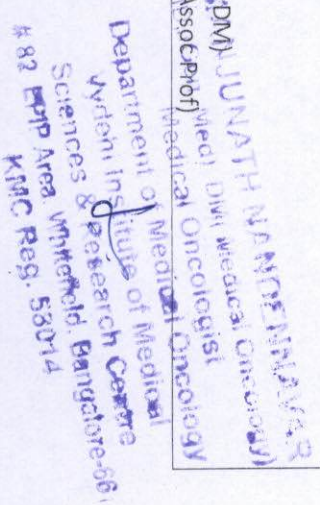 DM)
AssoC Prof)
JUNATH NANDENNAVAR
Med) DM( Medical Oncology)
Medical Oncologist
Department of Medical Oncology
Vydehi Institute of Medical
Sciences & Research Centre
# 82 EPIP Area Whitefield, Bangalore-66
KMC Reg. 53014